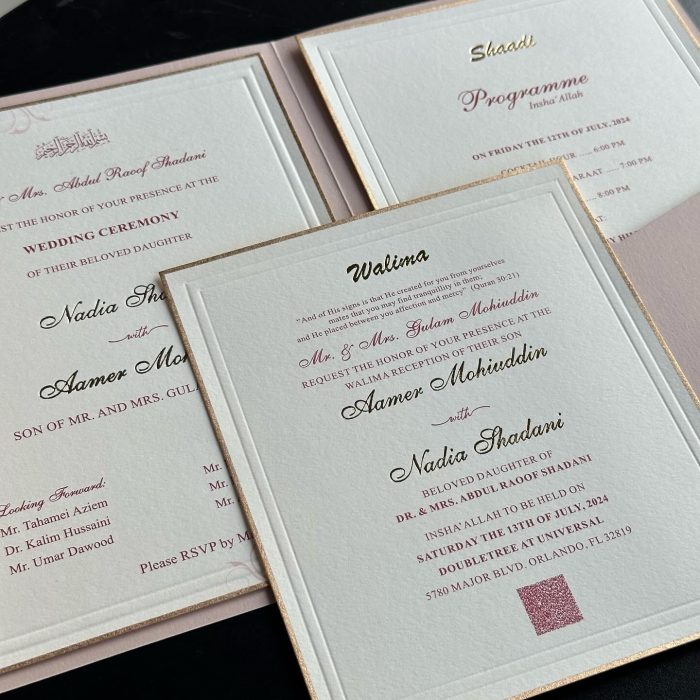 Mrs. Abdul Raoof Shadani
THE HONOR OF YOUR PRESENCE AT THE
WEDDING CEREMONY
OF THEIR BELOVED DAUGHTER
Nadia
with
Aamer
SON OF MR. AND MRS.
Looking Forward:
Mr. Tahamei Aziem
Dr. Kalim Hussaini
Mr. Umar Dawood
Mr.
Mr.
Please RSVP by
Shaadi
Programme
Insha'Allah
ON FRIDAY THE 12TH OF JULY, 2024
COCKTAIL HOUR ...... 6:00 PM
7:00 PM
8:00 PM
Walima
"And of His signs is that He created for you from yourselves
mates that you may find tranquility in them;
and He placed between you affection and mercy" (Quran 30:21)
Mr. & Mrs. Gulam Mohiuddin
REQUEST THE HONOR OF YOUR PRESENCE AT THE
WALIMA RECEPTION OF THEIR SON
Aamer Mohiuddin
with
Nadia Shadani
BELOVED DAUGHTER OF
DR. & MRS. ABDUL RAOOF SHADANI
INSHA'ALLAH TO BE HELD ON
SATURDAY THE 13TH OF JULY, 2024
DOUBLETREE AT UNIVERSAL
5780 MAJOR BLVD. ORLANDO, FL 32819